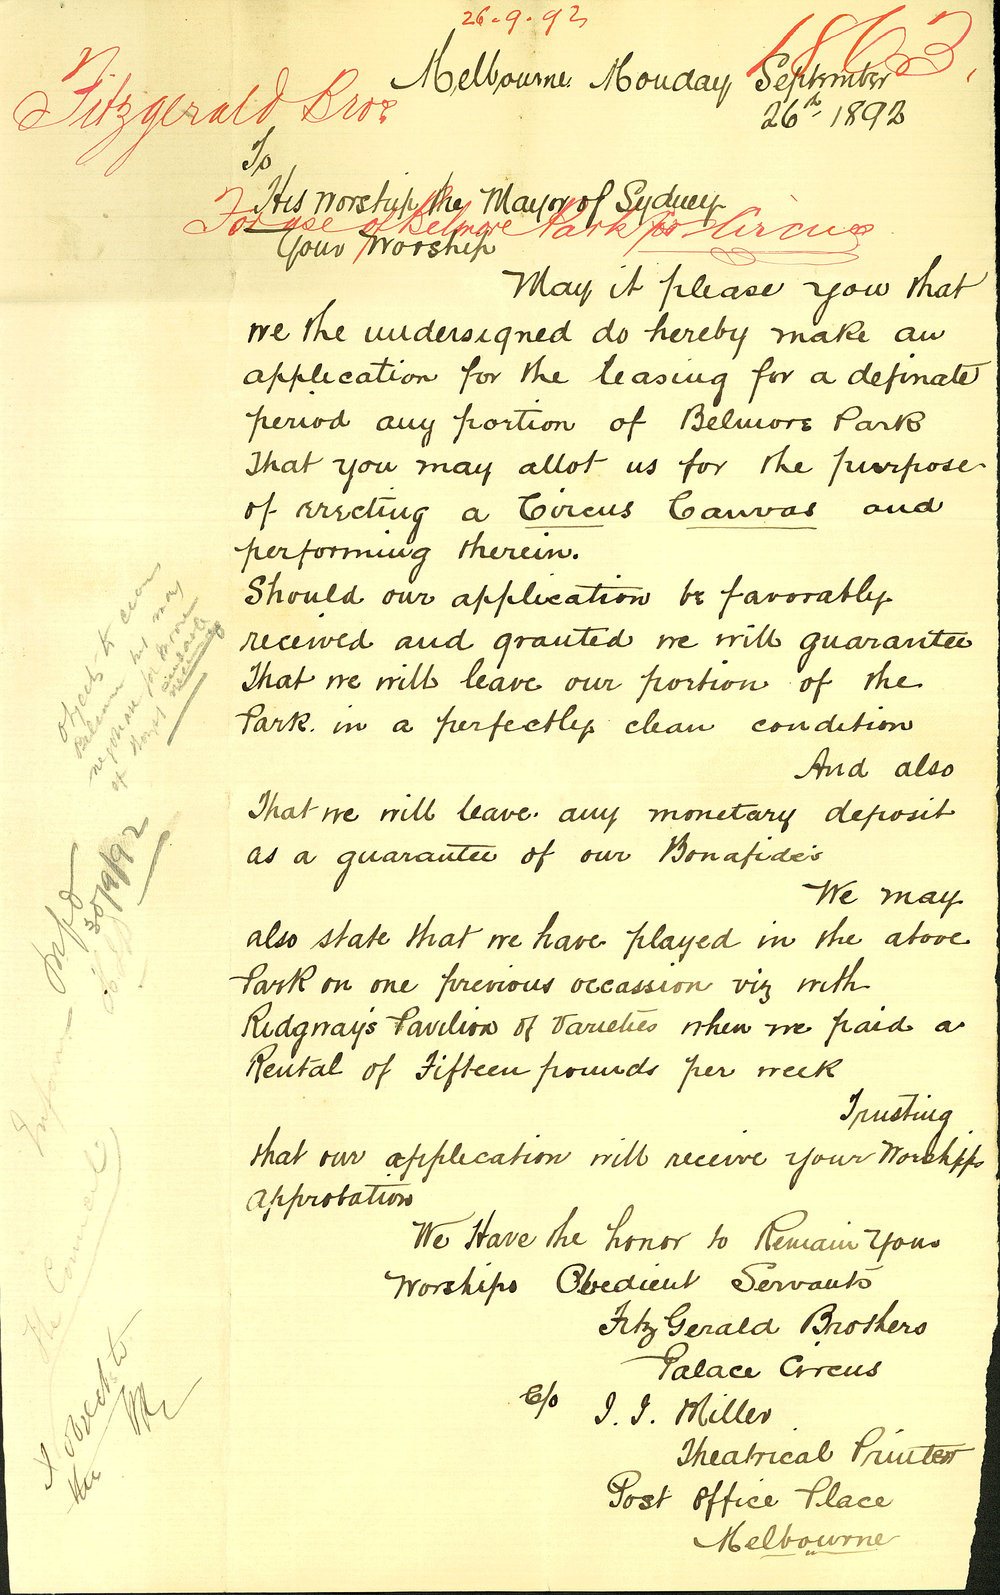 26-9-92
1863
Fitzgerald Bros
Melbourne Monday September
26th 1892
To
His Worship the Mayor of Sydney
For use of Belmore Park for Circus
Your Worship
May it please you that
we the undersigned do hereby make an
application for the leasing for a definate
period any portion of Belmore Park
That you may allot us for the purpose
of erecting a Circus Canvas and
performing therein.
Should our application be favorably
received and granted we will guarantee
That we will leave our portion of the
Park. in a perfectly clean condition
And also
That we will leave any monetary deposit
as a guarantee of our Bonafide's
We may
also state that we have played in the above
Park on one previous occassion viz with
Ridgway's Pavilion of Varieties when we paid a
Rental of Fifteen pounds per week
Trusting
that our application will receive your Worshipps
approbation
We Have the honor to Remain Your
Worships Obedient Servants
FitzGerald Brothers
Palace Circus
C/o J. J. Miller
Theatrical Printer
Post Office Place
Melbourne
objects to circus
negotiate for
of
Inform
30/9/92
The Council
I object to
the